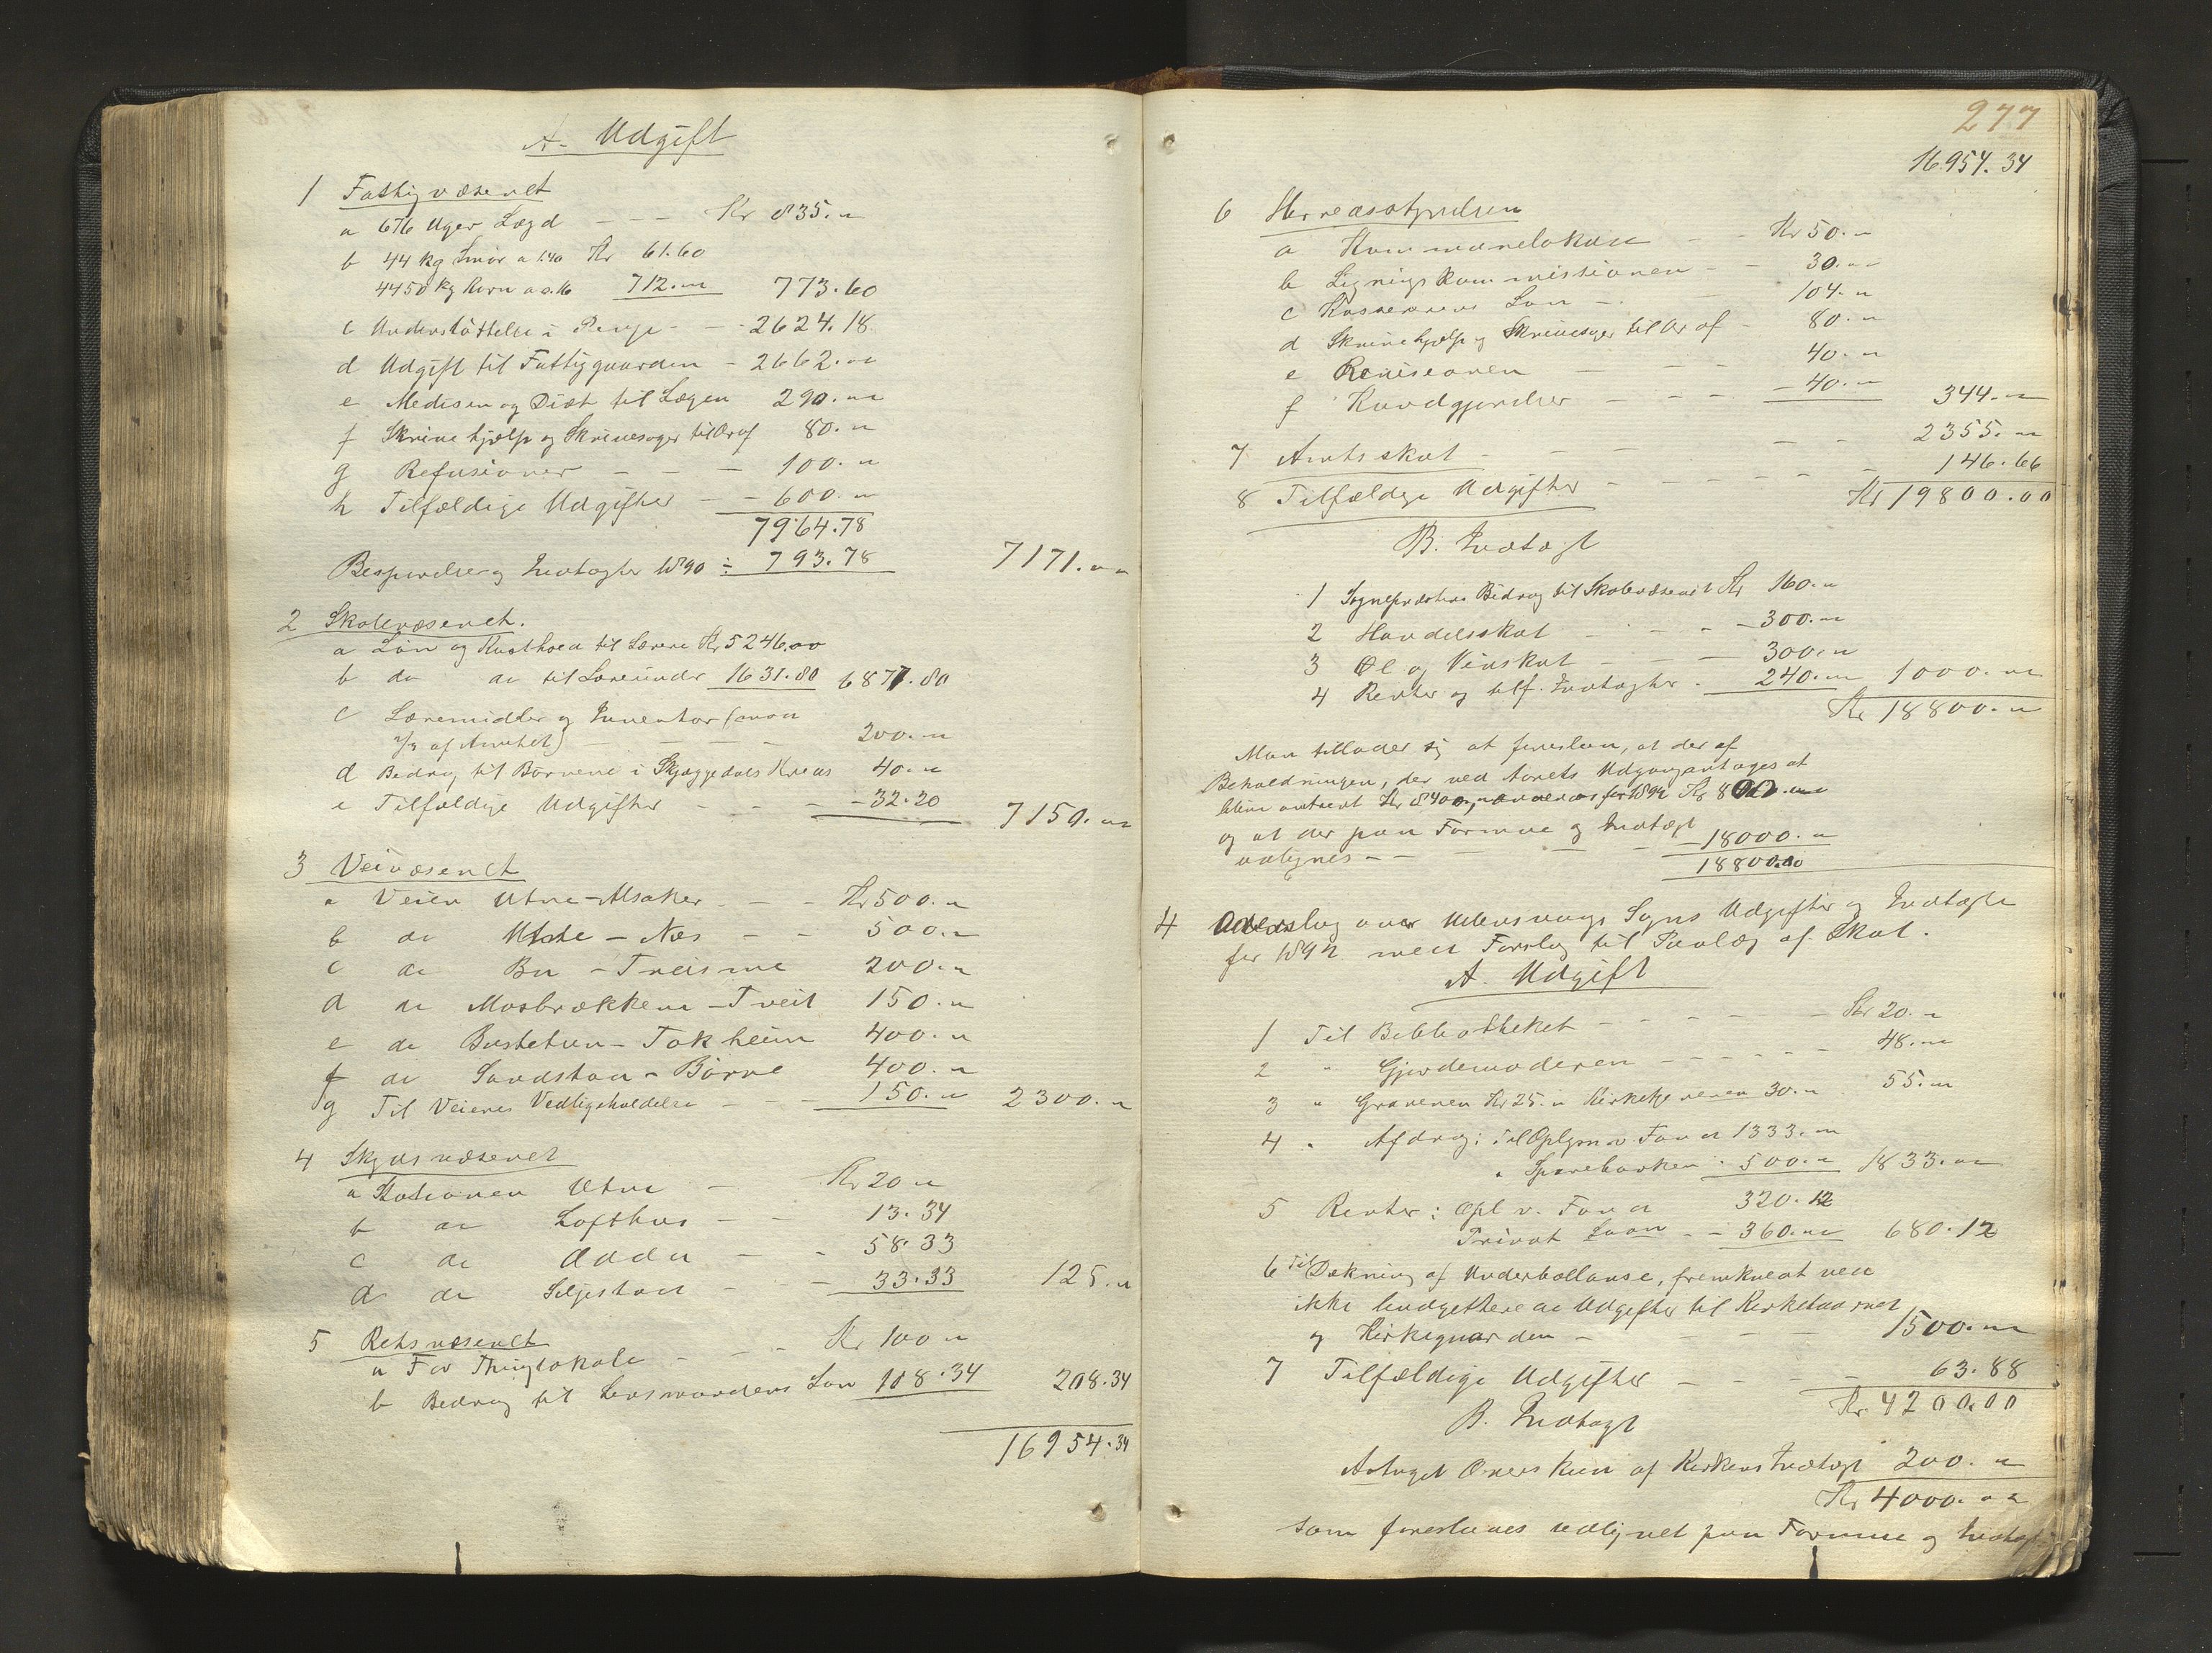 A. Udgift
1 Fattigvæsenet
a 676 Uger Lægd - - - Kr 835. "
b 44 kg Smör a 1.40 Kr 61.60
4450 kg Korn a 0.16 712. " 773.60
c Understöttelse i Penge - - - 2624.18
d Udgift til Fattiggaarden - 2662. "
e Medisin og Diæt til Lægen 290. "
f Skrivehjælp og Skrivesager til Ordf 80. "
g Refusioner - - - 100. "
h Tilfældige Udgifter - - 600. "
7964.78
Besparelse og Indtægter 1890 ÷ 793.78 7171. "
2 Skolevæsenet.
a Lön og Kosthold til Lærere Kr 5246.00
b do do til Lærerinder 1631.80 6877.80
c Læremidler og Inventar (
af Amtet) - - - - 200. "
d Bidrag til Börnene i Skjæggedals Kreds 40. "
e Tilfældige Udgifter - - - - 32.20 7150. "
3 Veivæsenet
a Veien Utne - Alsaker - - - Kr 500. "
b do - Næs - - 500. "
c do Bu - Treisme 200. "
d do Mosbrækkene - Tveit 150. "
e do Bustetun - Tokheim 400. "
f do Sandstøa - Börve 400. "
g Til Veienes Vedligeholdelse - - - 150. " 2300. "
4 Skydsvæsenet
a Stationen Utne - - Kr 20 "
b do Lofthus - - 13.34
c do Odda - - 58.33
d do Seljestad - - 33.33 125. "
5 Retsvæsenet
a For Thinglokale - - - Kr 100 "
b Bidrag til Lensmandens Lön 108.34 208.34
16954.34
277
16.954.34
6 Herredsstyrelsen
a Kommunelokale - - Kr 50. "
b Ligningskommissionen - - 30. "
c Kassererens Lön - . - 104. "
d Skrivehjælp og Skrivesager til Ordf - 80. "
e Revisionen - - - 40. "
f Kundgjörelser - - - - 40. " 344. "
7 Amtsskat - - - - - 2355. "
8 Tilfældige Udgifter - - - - - - 146.66
Kr 19800.00
B. Indtægt
1 Sognepræstens Bidrag til Skolevæsenet Kr 160. "
2 Handelsskat - - - - 300. "
3 Öl og Vinskat - - - 300. "
4 Renter og tilf. Indtægter - 240. " 1000. "
Kr 18800. "
Man tillader sig at foreslaa, at der af
Beholdningen, der ved Aarets Udgang antages at
blive omtrent Kr 8400, anvendes for 1892 Kr 800. "
og at der paa Formue og Indtægt
udlignes - - - - - 18000. "
18800.00
4 Overslag over Ullensvangs Sogns Udgifter og Indtægter
for 1892 med Forslag til Paalæg af Skat.
A. Udgift
1 Til Bibliotheket - - - - - Kr 20. "
2 " Gjordemoderen - - - - - - 48. "
3 " Graveren Kr 25. " Kirketjeneren 30. " 55. "
4 " Afdrag: Til Oplysn.v. Fond 1333. "
" Sparebanken - 500. " 1833. "
5 Renter: Opl v. Fond 320.12
Privat Laan - - 360. " 680.12
6 Til Dækning af Underballanse, fremkomt ved
ikke budgetterede Udgifter til Kirketaarnet
og Kirkegaarden - - - - 1500. "
7 Tilfældige Udgifter - - - - 63.88
Kr 4200.00
B. Indtægt
Antaget Overskud af Kirkens Indtægt 200. "
Kr 4000. "
som foreslaaes udlignet paa Formue og Indtægt